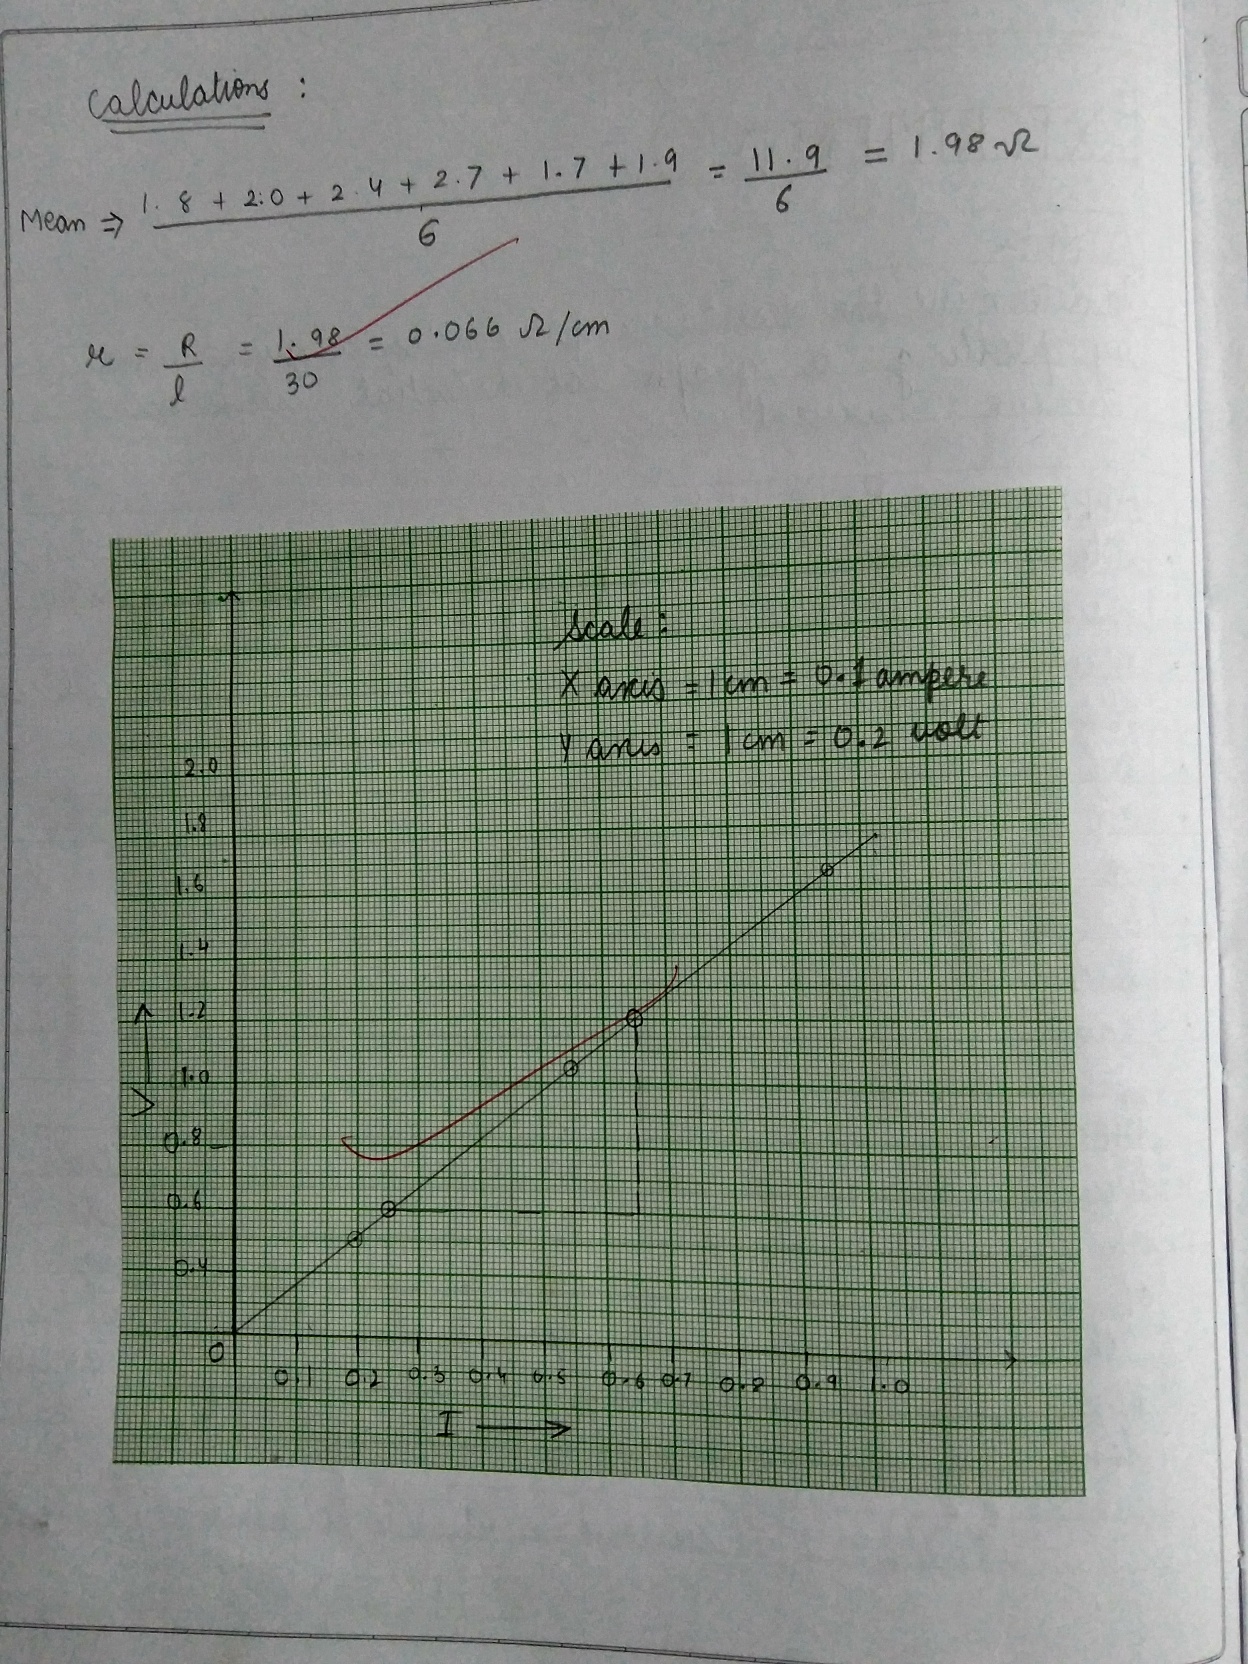 Calculations :
Mean ⇒ 1.8 + 2.0 + 2.4 + 2.7 + 1.7 + 1.9 / 6 = 11.9 / 6 = 1.98 Ω
r = R / l = 1.98 / 30 = 0.066 Ω/cm
Scale :
X axis = 1cm = 0.1 ampere
Y axis = 1cm = 0.2 volt
2.0
1.8
1.6
1.4
1.2
1.0
V →
0.8
0.6
0.4
0
0.1 0.2 0.3 0.4 0.5 0.6 0.7 0.8 0.9 1.0
I →